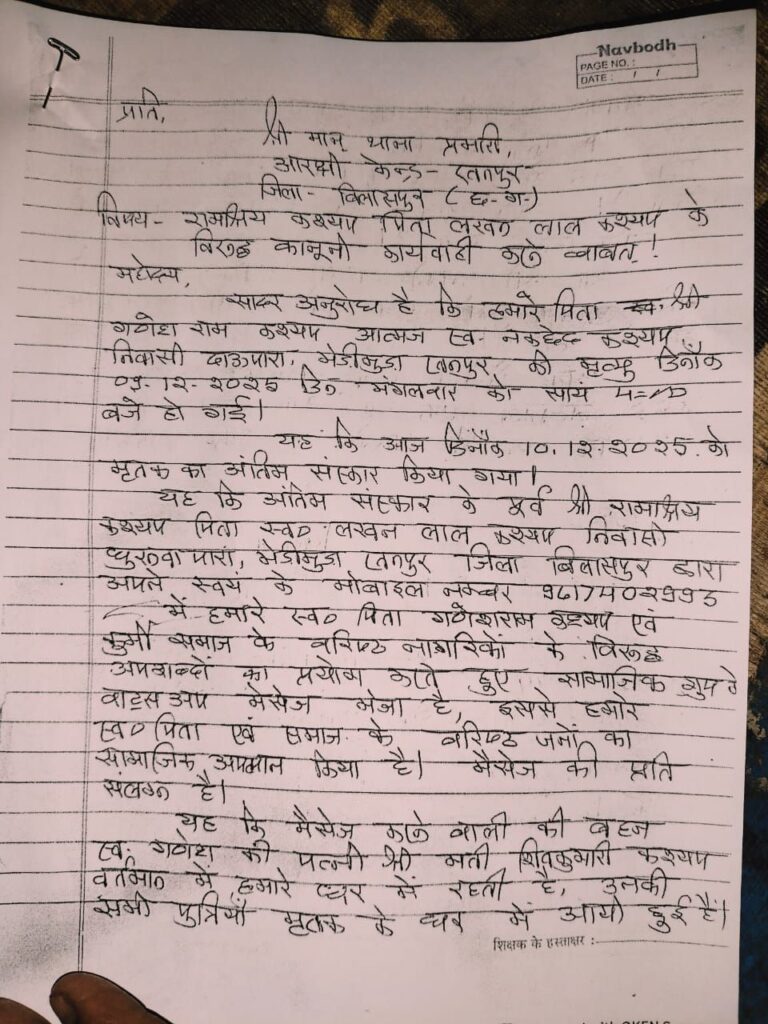 Navbodh
PAGE NO. :
DATE : / /
प्रति,
श्री मान् थाना प्रभारी,
आरक्षी केन्द्र- रतनपुर
जिला- बिलासपुर (छ.ग.)
विषय- रामप्रिय कश्यप पिता लखन लाल कश्यप के
विरुद्ध कानूनी कार्यवाही करने बाबत्!
महोदय,
सादर अनुरोध है कि हमारे पिता स्व. श्री
गणेश राम कश्यप आत्मज स्व. नकछेद कश्यप
निवासी दाऊपारा, भेड़ीमुड़ा रतनपुर की मृत्यु दिनाँक
09.12.2025 दिन मंगलवार को सायं 4=00
बजे हो गई।
यह कि आज दिनाँक 10.12.2025 को
मृतक का अंतिम संस्कार किया गया।
यह कि अंतिम संस्कार के पूर्व श्री रामप्रिय
कश्यप पिता स्व० लखन लाल कश्यप निवासी
धुरुवा पारा, भेड़ीमुड़ा रतनपुर जिला बिलासपुर द्वारा
अपने स्वयं के मोबाइल नम्बर 9617402993
में हमारे स्व० पिता गणेशराम कश्यप एवं
कुर्मी समाज के वरिष्ठ नागरिकों के विरुद्ध
अपशब्दों का प्रयोग करते हुए सामाजिक ग्रुप में
वाट्स अप मेसेज भेजा है, इससे हमारे
स्व० पिता एवं समाज के वरिष्ठ जनों का
सामाजिक अपमान किया है। मैसेज की प्रति
संलग्न है।
यह कि मैसेज करने वाली की बहन
स्व. गणेश की पत्नी श्री मती शिवकुमारी कश्यप
वर्तमान में हमारे घर में रहती है, उनकी
सभी पुत्रियाँ मृतक के घर में आयी हुई हैं।
शिक्षक के हस्ताक्षर :